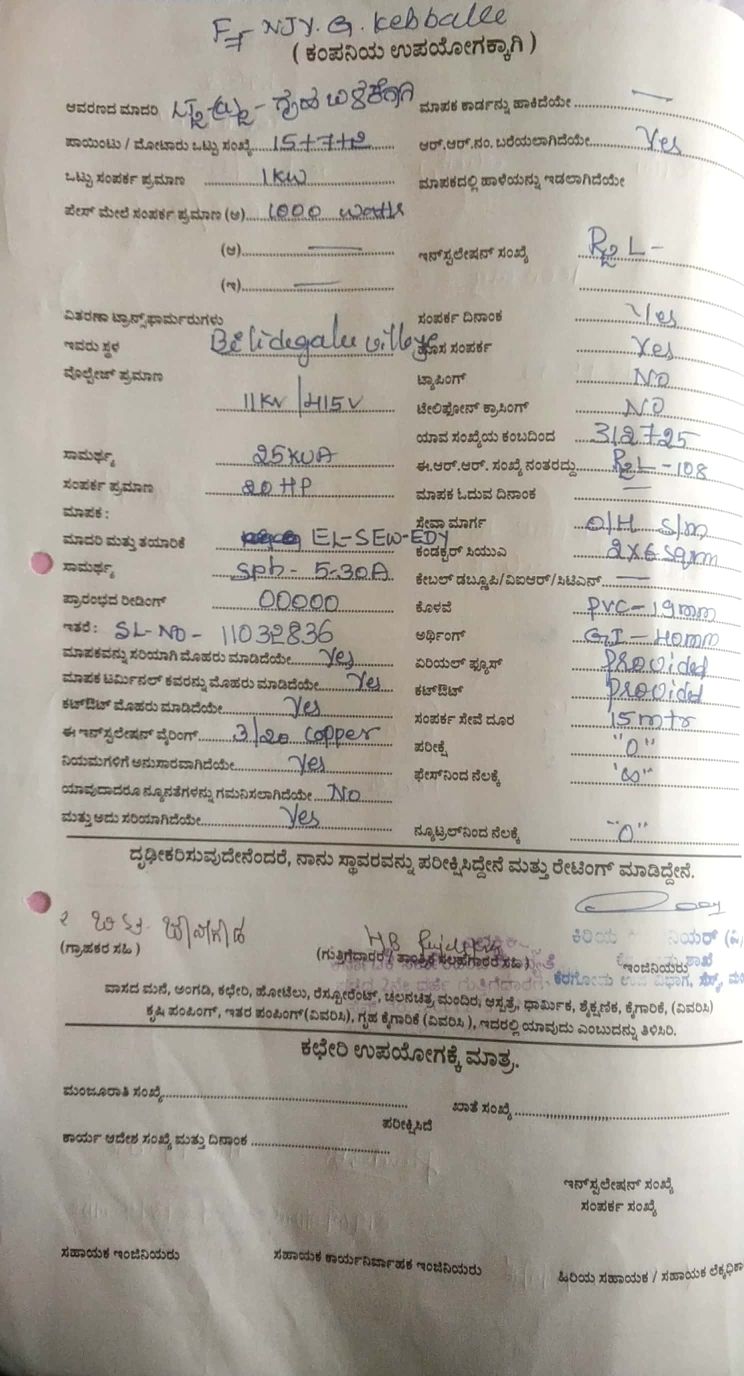 F=F NJY. G. Kebballe
( ಕಂಪನಿಯ ಉಪಯೋಗಕ್ಕಾಗಿ )
ಆವರಣದ ಮಾದರಿ ಗೃಹ ಬಳಕೆಗಾಗಿ ಮಾಪಕ ಕಾರ್ಡನ್ನು ಹಾಕಿದೆಯೇ
ಪಾಯಿಂಟು / ಮೋಟಾರು ಒಟ್ಟು ಸಂಖ್ಯೆ 15+7+2 ಆರ್.ಆರ್.ನಂ. ಬರೆಯಲಾಗಿದೆಯೇ Yes
ಒಟ್ಟು ಸಂಪರ್ಕ ಪ್ರಮಾಣ 1KW ಮಾಪಕದಲ್ಲಿ ಹಾಳೆಯನ್ನು ಇಡಲಾಗಿದೆಯೇ
ಫೇಸ್ ಮೇಲೆ ಸಂಪರ್ಕ ಪ್ರಮಾಣ (ಅ) 1000 watts
(ಆ) ಇನ್‌ಸ್ಟಲೇಷನ್ ಸಂಖ್ಯೆ R2L-
(ಇ)
ವಿತರಣಾ ಟ್ರಾನ್ಸ್‌ಫಾರ್ಮರುಗಳು ಸಂಪರ್ಕ ದಿನಾಂಕ Yes
ಇವರು ಸ್ಥಳ Bilidegalu village ಹೊಸ ಸಂಪರ್ಕ Yes
ವೊಲ್ಟೇಜ್ ಪ್ರಮಾಣ ಟ್ಯಾಪಿಂಗ್ NO
11KV/415V ಟೇಲಿಫೋನ್ ಕ್ರಾಸಿಂಗ್ NO
ಯಾವ ಸಂಖ್ಯೆಯ ಕಂಬದಿಂದ
ಸಾಮರ್ಥ್ಯ 25KVA ಈ.ಆರ್.ಆರ್. ಸಂಖ್ಯೆ ನಂತರದ್ದು R2L-108
ಸಂಪರ್ಕ ಪ್ರಮಾಣ 20HP ಮಾಪಕ ಓದುವ ದಿನಾಂಕ
ಮಾಪಕ : ಸೇವಾ ಮಾರ್ಗ O/H S/m
ಮಾದರಿ ಮತ್ತು ತಯಾರಿಕೆ EL-SEW-EDY ಕಂಡಕ್ಟರ್ ಸಿಯುಎ 2X6 Sqmm
ಸಾಮರ್ಥ್ಯ Sph- 5-30A ಕೇಬಲ್ ಡಬ್ಲೂಪಿ/ವಿಐಆರ್/ಸಿಟಿಎನ್
ಪ್ರಾರಂಭದ ರೀಡಿಂಗ್ 00000 ಕೊಳವೆ PVC-19mm
ಇತರೆ : SL-NO- 11032836 ಅರ್ಥಿಂಗ್ GI-40mm
ಮಾಪಕವನ್ನು ಸರಿಯಾಗಿ ಮೊಹರು ಮಾಡಿದೆಯೇ Yes ಏರಿಯಲ್ ಫ್ಯೂಸ್ Provided
ಮಾಪಕ ಟರ್ಮಿನಲ್ ಕವರನ್ನು ಮೊಹರು ಮಾಡಿದೆಯೇ Yes ಕಟ್‌ಔಟ್ Provided
ಕಟ್‌ಔಟ್ ಮೊಹರು ಮಾಡಿದೆಯೇ Yes ಸಂಪರ್ಕ ಸೇವೆ ದೂರ 15mtr
ಈ ಇನ್‌ಸ್ಟಲೇಷನ್ ವೈರಿಂಗ್ 3/20 copper ಪರೀಕ್ಷೆ "0"
ನಿಯಮಗಳಿಗೆ ಅನುಸಾರವಾಗಿದೆಯೇ Yes ಫೇಸ್‌ನಿಂದ ನೆಲಕ್ಕೆ "∞"
ಯಾವುದಾದರೂ ನ್ಯೂನತೆಗಳನ್ನು ಗಮನಿಸಲಾಗಿದೆಯೇ No
ಮತ್ತು ಅದು ಸರಿಯಾಗಿದೆಯೇ Yes ನ್ಯೂಟ್ರಲ್‌ನಿಂದ ನೆಲಕ್ಕೆ "0"
ದೃಢೀಕರಿಸುವುದೇನೆಂದರೆ, ನಾನು ಸ್ಥಾವರವನ್ನು ಪರೀಕ್ಷಿಸಿದ್ದೇನೆ ಮತ್ತು ರೇಟಿಂಗ್ ಮಾಡಿದ್ದೇನೆ.
(ಗ್ರಾಹಕರ ಸಹಿ ) (ಗುತ್ತಿಗೆದಾರರ / ತಾಂತ್ರಿಕ ಸಲಹೆಗಾರರ ಸಹಿ ) ಇಂಜಿನಿಯರು
ವಾಸದ ಮನೆ, ಅಂಗಡಿ, ಕಛೇರಿ, ಹೋಟೆಲು, ರೆಸ್ಟೋರೆಂಟ್, ಚಲನಚಿತ್ರ ಮಂದಿರ, ಆಸ್ಪತ್ರೆ, ಧಾರ್ಮಿಕ, ಶೈಕ್ಷಣಿಕ, ಕೈಗಾರಿಕೆ, (ವಿವರಿಸಿ)
ಕೃಷಿ ಪಂಪಿಂಗ್, ಇತರ ಪಂಪಿಂಗ್(ವಿವರಿಸಿ), ಗೃಹ ಕೈಗಾರಿಕೆ (ವಿವರಿಸಿ ), ಇದರಲ್ಲಿ ಯಾವುದು ಎಂಬುದನ್ನು ತಿಳಿಸಿರಿ.
ಕಛೇರಿ ಉಪಯೋಗಕ್ಕೆ ಮಾತ್ರ.
ಮಂಜೂರಾತಿ ಸಂಖ್ಯೆ ಖಾತೆ ಸಂಖ್ಯೆ
ಪರೀಕ್ಷಿಸಿದೆ
ಕಾರ್ಯ ಆದೇಶ ಸಂಖ್ಯೆ ಮತ್ತು ದಿನಾಂಕ
ಇನ್‌ಸ್ಟಲೇಷನ್ ಸಂಖ್ಯೆ
ಸಂಪರ್ಕ ಸಂಖ್ಯೆ
ಸಹಾಯಕ ಇಂಜಿನಿಯರು ಸಹಾಯಕ ಕಾರ್ಯನಿರ್ವಾಹಕ ಇಂಜಿನಿಯರು ಹಿರಿಯ ಸಹಾಯಕ / ಸಹಾಯಕ